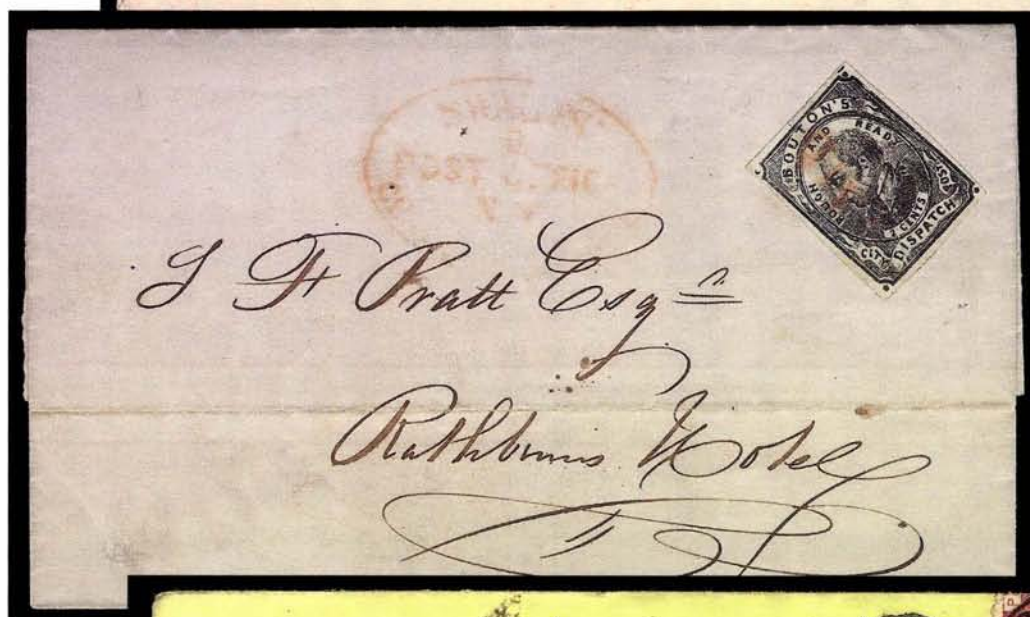 BOUTON'S
AND READY
2 CENTS
CITY DISPATCH POST
S F Pratt Esqr
Rathbuns Hotel